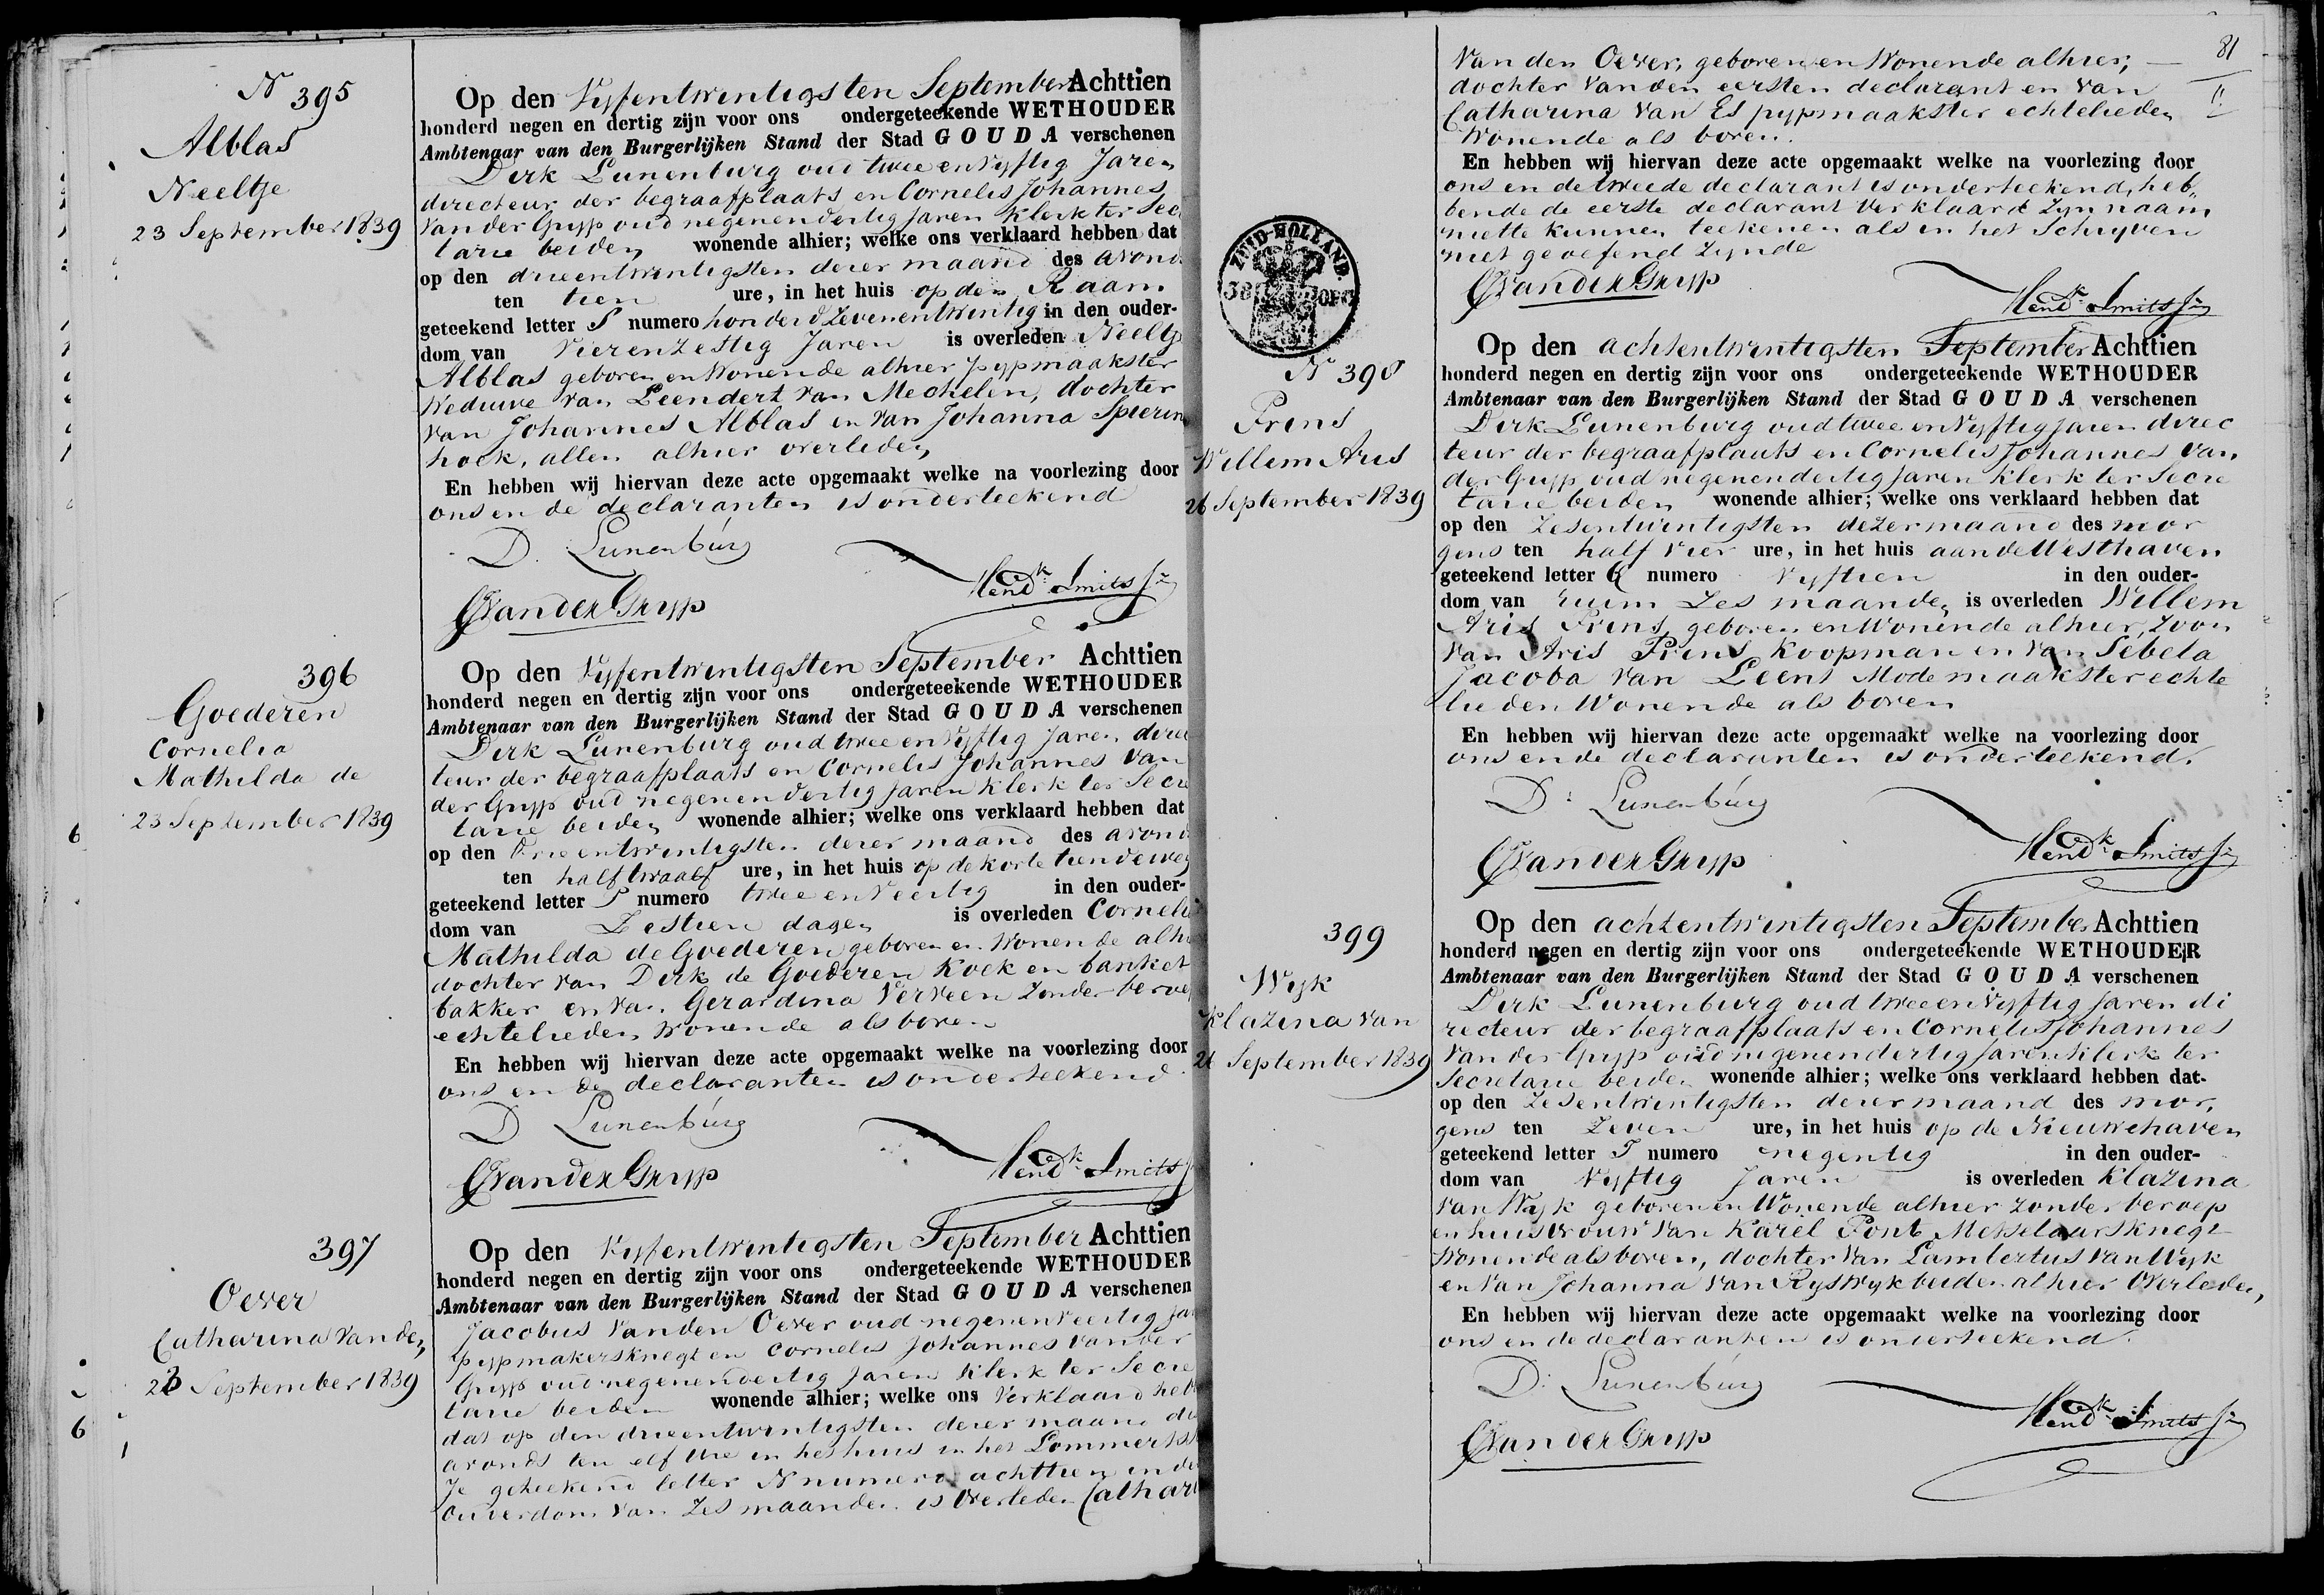 N 395
Alblas
Neeltje
23 September 1839
Op den Vyfentwintigsten September Achttien
honderd negen en dertig zijn voor ons ondergeteekende WETHOUDER
Ambtenaar van den Burgerlijken Stand der Stad GOUDA verschenen
Dirk Lunenburg oud twee en Vyftig Jaren
directeur der begraafplaats en Cornelis Johannes
van der Gryp oud negenendertig Jaren Klerk ter Sec
tarie beiden wonende alhier; welke ons verklaard hebben dat
op den drieentwintigsten dezer maand des avond
ten tien ure, in het huis op den Raam
geteekend letter S numero honderd Zevenentwintig in den ouder-
dom van Vierenzestig Jaren is overleden Neeltje
Alblas geboren en Wonende alhier pypmaakster
Weduwe van Leendert van Mechelen, dochter
van Johannes Alblas en van Johanna Spierin
hoek, allen alhier overleden
En hebben wij hiervan deze acte opgemaakt welke na voorlezing door
ons en de declaranten is onderteekend
D. Lunenburg
Hendk Smits Jz
CJvanderGryp
396
Goederen
Cornelia
Mathilda de
23 September 1839
Op den Vyfentwintigsten September Achttien
honderd negen en dertig zijn voor ons ondergeteekende WETHOUDER
Ambtenaar van den Burgerlijken Stand der Stad GOUDA verschenen
Dirk Lunenburg oud twee en Vyftig Jaren direc
teur der begraafplaats en Cornelis Johannes van
der Gryp oud negenendertig Jaren Klerk ter Secre
tarie beiden wonende alhier; welke ons verklaard hebben dat
op den drieentwintigsten dezer maand des avond
ten half twaalf ure, in het huis op de korte tiendeweg
geteekend letter S numero twee en Veertig in den ouder-
dom van Zestien dagen is overleden Cornelia
Mathilda de Goederen geboren en Wonende alhi
dochter van Dirk de Goederen Koek en banket
bakker en van Gerardina Verveen Zonder beroep
echtelieden Wonende als boven
En hebben wij hiervan deze acte opgemaakt welke na voorlezing door
ons en de declaranten is onderteekend.
D Lunenburg
Hendk Smits J
CJvanderGryp
397
Oever
Catharina van den
23 September 1839
Op den Vyfentwintigsten September Achttien
honderd negen en dertig zijn voor ons ondergeteekende WETHOUDER
Ambtenaar van den Burgerlijken Stand der Stad GOUDA verschenen
Jacobus Vanden Oever oud negenenveertig Jar
pypmakersknegt en Cornelis Johannes van der
Gryp oud negenendertig Jaren Klerk ter Secre
tarie beiden wonende alhier; welke ons Verklaard heb
dat op den drieentwintigsten dezer maand des
avonds ten elf ure in het huis in het Lommertst
Je geteekend letter N numero achttien in den
ouderdom van Zes maanden is Overleden Cathari
81
Van den Oever, geboren en Wonende alhier;
dochter Vanden eersten declarant en van
Catharina van Es pypmaakster echtelieden
Wonende als boven.
En hebben wij hiervan deze acte opgemaakt welke na voorlezing door
ons en de tweede declarant is onderteekend, heb,
bende de eerste declarant Verklaard Zyn naam
niette kunnen teekenen als in het Schryven
niet geoefend Zynde
CJvanderGryp
Hendk Smits Jz
ZUID-HOLLAND.
N 398
Prins
Willem Aris
26 September 1839
Op den achtentwintigsten September Achttien
honderd negen en dertig zijn voor ons ondergeteekende WETHOUDER
Ambtenaar van den Burgerlijken Stand der Stad GOUDA verschenen
Dirk Lunenburg oud twee en Vyftig Jaren direc
teur der begraafplaats en Cornelis Johannes van
der Gryp oud negenendertig Jaren Klerk ter Secre
tarie beiden wonende alhier; welke ons verklaard hebben dat
op den Zesentwintigsten dezer maand des mor
gens ten half Vier ure, in het huis aan de Westhaven
geteekend letter numero Vyftien in den ouder-
dom van ruim Zes maanden is overleden Willem
Aris Prins, geboren en Wonende alhier, Zoon
van Aris Prins Koopman en van Sebeta
Jacoba van Leent Modemaakster echte
lieden Wonende als boven
En hebben wij hiervan deze acte opgemaakt welke na voorlezing door
ons en de declaranten is onderteekend.
D: Lunenburg
Hendk Smits Jz
CJvanderGryp
399
Wyk
Klazina van
26 September 1839
Op den achtentwintigsten September Achttien
honderd negen en dertig zijn voor ons ondergeteekende WETHOUDER
Ambtenaar van den Burgerlijken Stand der Stad GOUDA verschenen
Dirk Lunenburg oud twee en Vyftig Jaren di
recteur der begraafplaats en Cornelis Johannes
van der Gryp oud negenendertig Jaren Klerk ter
Secretarie beiden wonende alhier; welke ons verklaard hebben dat
op den Zesentwintigsten dezer maand des mor,
gens ten Zeven ure, in het huis op de Nieuwehaven
geteekend letter numero negentig in den ouder-
dom van Vyftig Jaren is overleden Klazina
van Wyk geboren en Wonende alhier Zonder beroep
en huisvrouw van Karel Pont Metselaarsknegt
Wonende als boven, dochter van Lambertus van Wyk
en van Johanna van Ryswyk beiden alhier Overleden,
En hebben wij hiervan deze acte opgemaakt welke na voorlezing door
ons en de declaranten is onderteekend.
D: Lunenburg
Hendk Smits Jz
CJvanderGryp